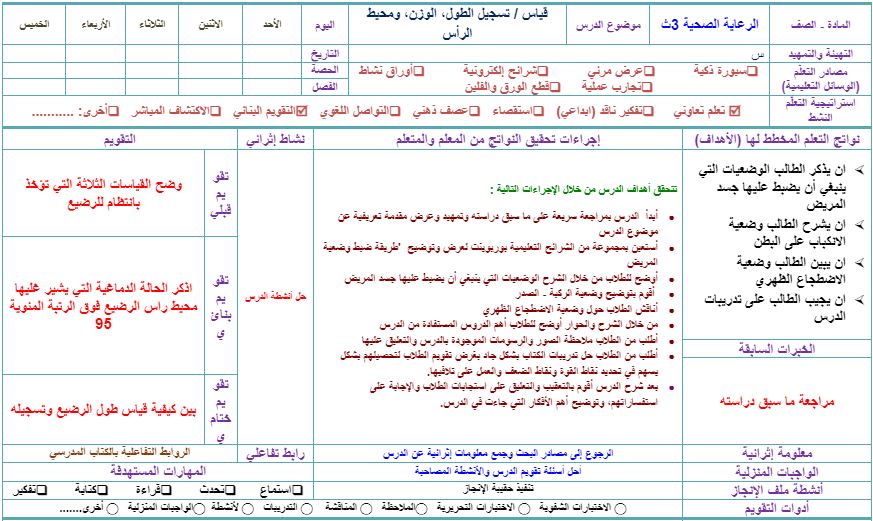 المادة - الصف
الرعاية الصحية 3ث
موضوع الدرس
قياس / تسجيل الطول، الوزن، ومحيط الرأس
اليوم
الأحد
الاثنين
الثلاثاء
الأربعاء
الخميس
التهيئة والتمهيد
س
التاريخ
مصادر التعلّم
(الوسائل التعليمية)
❑سبورة ذكية ❑عرض مرئي ❑شرائح إلكترونية ❑أوراق نشاط
❑تجارب عملية ❑قطع الورق والفلين
الحصة
الفصل
استراتيجية التعلّم
النشط
☑ تعلم تعاوني ❑تفكير ناقد (ابداعي) ❑استقصاء ❑عصف ذهني ❑التواصل اللغوي ☑التقويم البنائي ❑الاكتشاف المباشر ❑أخرى: ...........
نواتج التعلم المخطط لها (الأهداف)
إجراءات تحقيق النواتج من المعلم والمتعلم
نشاط إثرائي
التقويم
ان يذكر الطالب الوضعيات التي
ينبغي أن يضبط عليها جسد
المريض
ان يشرح الطالب وضعية
الانكباب على البطن
ان يبين الطالب وضعية
الاضطجاع الظهري
ان يجيب الطالب على تدريبات
الدرس
الخبرات السابقة
مراجعة ما سبق دراسته
تتحقق أهداف الدرس من خلال الإجراءات التالية :
أبدأ الدرس بمراجعة سريعة على ما سبق دراسته وتمهيد وعرض مقدمة تعريفية عن
موضوع الدرس
أستعين بمجموعة من الشرائح التعليمية بوربوينت لعرض وتوضيح "طريقة ضبط وضعية
المريض
أوضح للطلاب من خلال الشرح الوضعيات التي ينبغي أن يضبط عليها جسد المريض
أقوم بتوضيح وضعية الركبة - الصدر
أناقش الطلاب حول وضعية الاضطجاع الظهري
من خلال الشرح والحوار أوضح للطلاب أهم الدروس المستفادة من الدرس
أطلب من الطلاب ملاحظة الصور والرسومات الموجودة بالدرس والتعليق عليها
أطلب من الطلاب حل تدريبات الكتاب بشكل جاد بغرض تقويم الطلاب لتحصيلهم بشكل
يسهم في تحديد نقاط القوة ونقاط الضعف والعمل على تلافيها.
بعد شرح الدرس أقوم بالتعقيب والتعليق على استجابات الطلاب والإجابة على
استفساراتهم، وتوضيح أهم الأفكار التي جاءت في الدرس.
حل أنشطة الدرس
تقو
يم
قبلي
وضح القياسات الثلاثة التي تؤخذ
بانتظام للرضيع
تقو
يم
بنائ
ي
اذكر الحالة الدماغية التي يشير غليها
محيط راس الرضيع فوق الرتبة المئوية
95
تقو
يم
ختام
ي
بين كيفية قياس طول الرضيع وتسجيله
معلومة إثرائية
الرجوع إلى مصادر البحث وجمع معلومات إثرائية عن الدرس
رابط تفاعلي
الروابط التفاعلية بالكتاب المدرسي
الواجبات المنزلية
أحل أسئلة تقويم الدرس والأنشطة المصاحبة
المهارات المستهدفة
أنشطة ملف الإنجاز
تنفيذ حقيبة الإنجاز
❑استماع ❑تحدث ❑قراءة ❑كتابة ❑تفكير
أدوات التقويم
○ الاختبارات الشفوية ○ الاختبارات التحريرية ○ الملاحظة ○ المناقشة ○ التدريبات ○ لأنشطة ○الواجبات المنزلية ○ أخرى.......